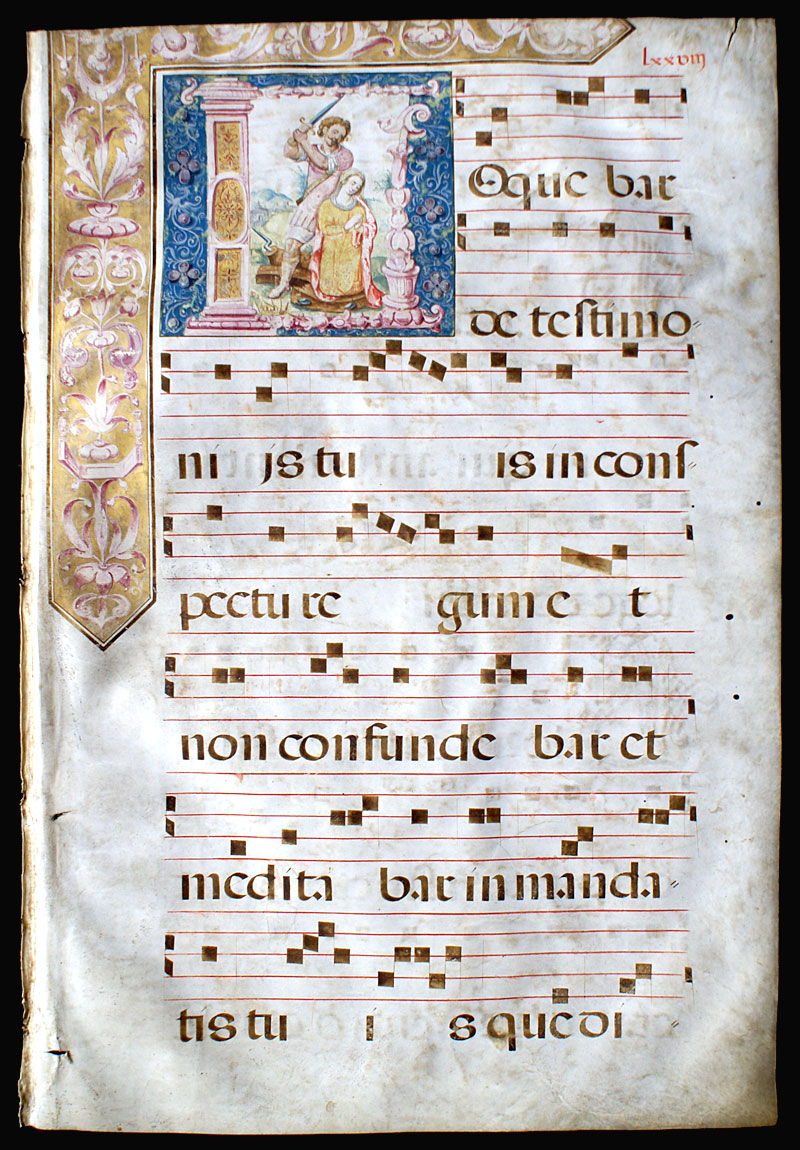 Lxxviij
LOque bar
de teſtimo〃
ni js tu is in conſ
pectu re gum e t
non confunde bar et
medita bar in manda〃
tis tu i s que di〃